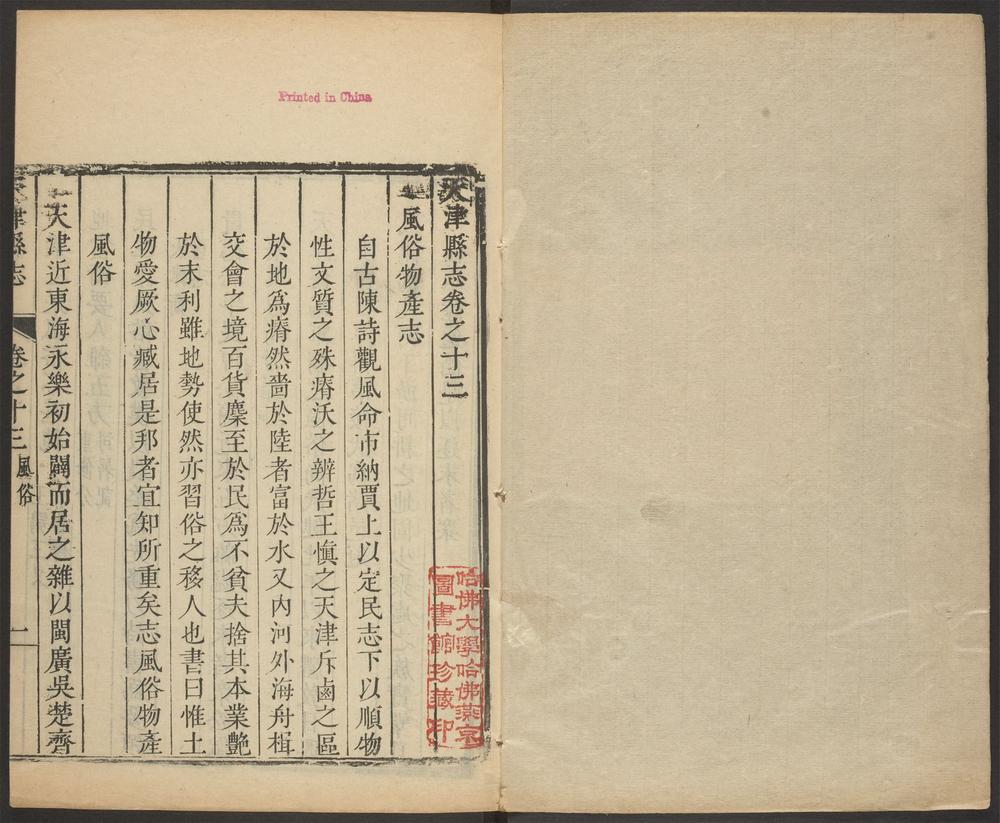 Printed in China
天津縣志卷之十三
風俗物產志
自古陳詩觀風命市納賈上以定民志下以順物
性文質之殊瘠沃之辨哲王慎之天津斥鹵之區
於地爲瘠然嗇於陸者富於水又內河外海舟楫
交會之境百貨麇至於民爲不貧夫捨其本業艷
於末利雖地勢使然亦習俗之移人也書曰惟土
物愛厥心臧居是邦者宜知所重矣志風俗物產
風俗
天津近東海永樂初始闢而居之雜以閩廣吳楚齊
津縣志 卷之十三 風俗 一
哈佛大學哈佛燕京
圖書館珍藏印